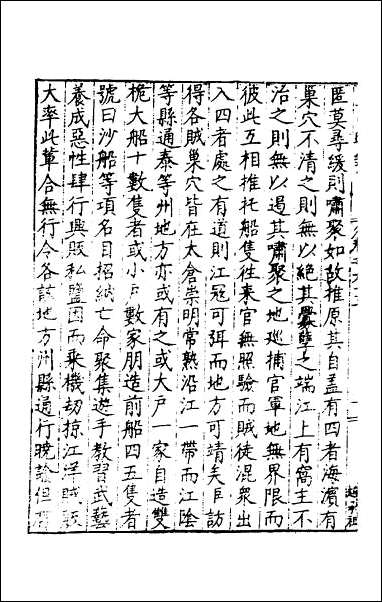 匿莫尋緩則嘯聚如故推原其自盖有四者海濱有
巢穴不清之則無以絕其釁孽之端江上有窩主不
治之則無以遏其嘯聚之地巡捕官軍地無界限而
彼此互相推托船隻徃来官無照驗而賊徒混衆出
入四者處之有道則江冦可弭而地方可靖矣臣訪
得各賊巢穴皆在太倉崇明常熟沿江一帶而江陰
等縣通泰等州地方亦或有之或大戶一家自造雙
桅大船十數隻者或小戶數家朋造前船四五隻者
號曰沙船等項名目招納亡命聚集遊手教習武藝
養成惡性肆行興販私鹽因而乗機刼掠江洋賊

大率此軰合無行令各該地方州縣通行曉諭但